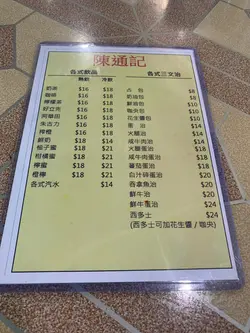 陳通記
各式飲品
熱飲 冷飲
奶茶 $16 $18
咖啡 $16 $18
檸檬茶 $16 $18
好立克 $16 $18
阿華田 $16 $18
朱古力 $16 $18
$16 $18
鮮奶 $18
柚子蜜 $18 $21
柑橘蜜 $18 $21
檸蜜 $18 $21
橙檸 $18 $21
各式汽水 $14
各式三文治
占包 $8
奶油包 $8
鮮油包 $8
咖央包 $8
花生醬包 $8
蛋治 $14
火腿治 $14
咸牛肉治 $14
火腿蛋治 $18
咸牛肉蛋治 $18
蕃茄蛋治 $18
白汁碎蛋治 $20
吞拿魚治 $20
鮮牛治 $20
鮮牛蛋治 $24
西多士 $24
(西多士可加花生醬 / 咖央)